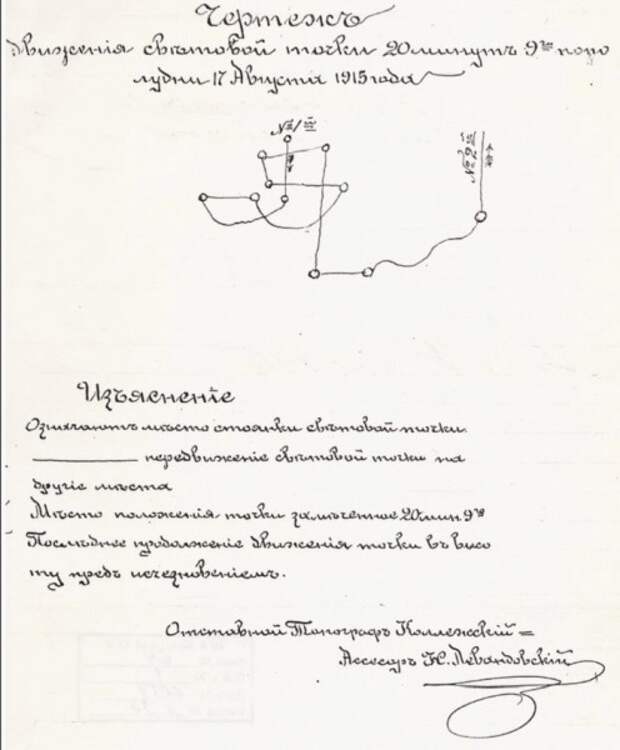 Чертежъ
движенія свѣтовой точки 20 минутъ 9го попо
лудни 17 Августа 1915 года
№ 1
№ 2
Изъясненіе
Означаютъ мѣсто стоянки свѣтовой точки.
передвиженіе свѣтовой точки на
другіе мѣста
Мѣсто положенія точки замѣченное 20 мин. 9го
Послѣднее продолженіе движенія точки въ высо
ту предъ исчезновеніемъ.
Отставной Топографъ Коллежскій =
Ассесоръ Н. Левандовскій